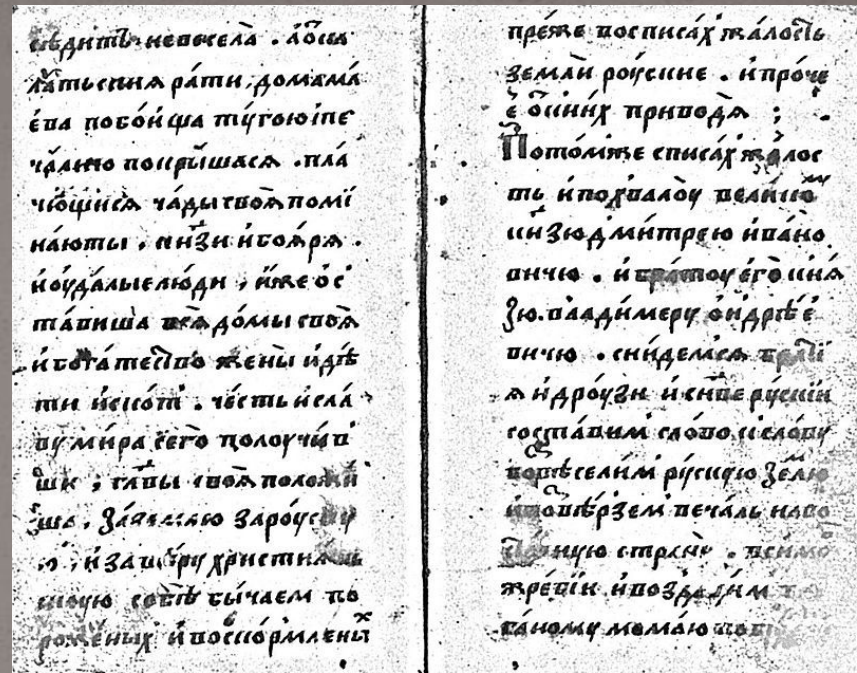 сѣдитъ невесела . а ѿ ка
латьскиꙗ рати, до мама
ева побоища тугою и пе
чалию покрышасꙗ . пла
чющисѧ чады своꙗ поми
наюты . кнꙗзи и боꙗрꙗ .
и оудалые люди , иже ос
тавиша всꙗ домы своꙗ
и богатество жены и дѣ
ти и скот . честь и сла
ву мира сего получив
ши ; главы своꙗ положи
ша . за землю за роускую
и за вѣру христиꙗнь
скую собѣ бычаем по
роженых и воскормленых
преже восписах жалость
земли роускые . и проче
е ѿ кних приводꙗ ;
Потом же списах жалос
ть и похвалоу великому
кнзю дмитрею ивано
вичю . и братоу его кнꙗ
зю . владимеру ондрѣе
вичю . снидемсꙗ брати
ꙗ и дроузи и снве рускии
составим слово к слову
возвеселим рускую землю
и возверзем печаль на во
сточную страну . в симо
в жребии и воздадим
ганому момаю